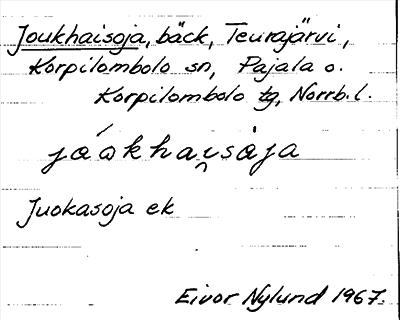 Joukhaisoja, bäck, Teurajärvi,
Korpilombolo sn, Pajala o.
Korpilombolo tg, Norrb. l.
Juokasoja ek
Eivor Nylund 1967.